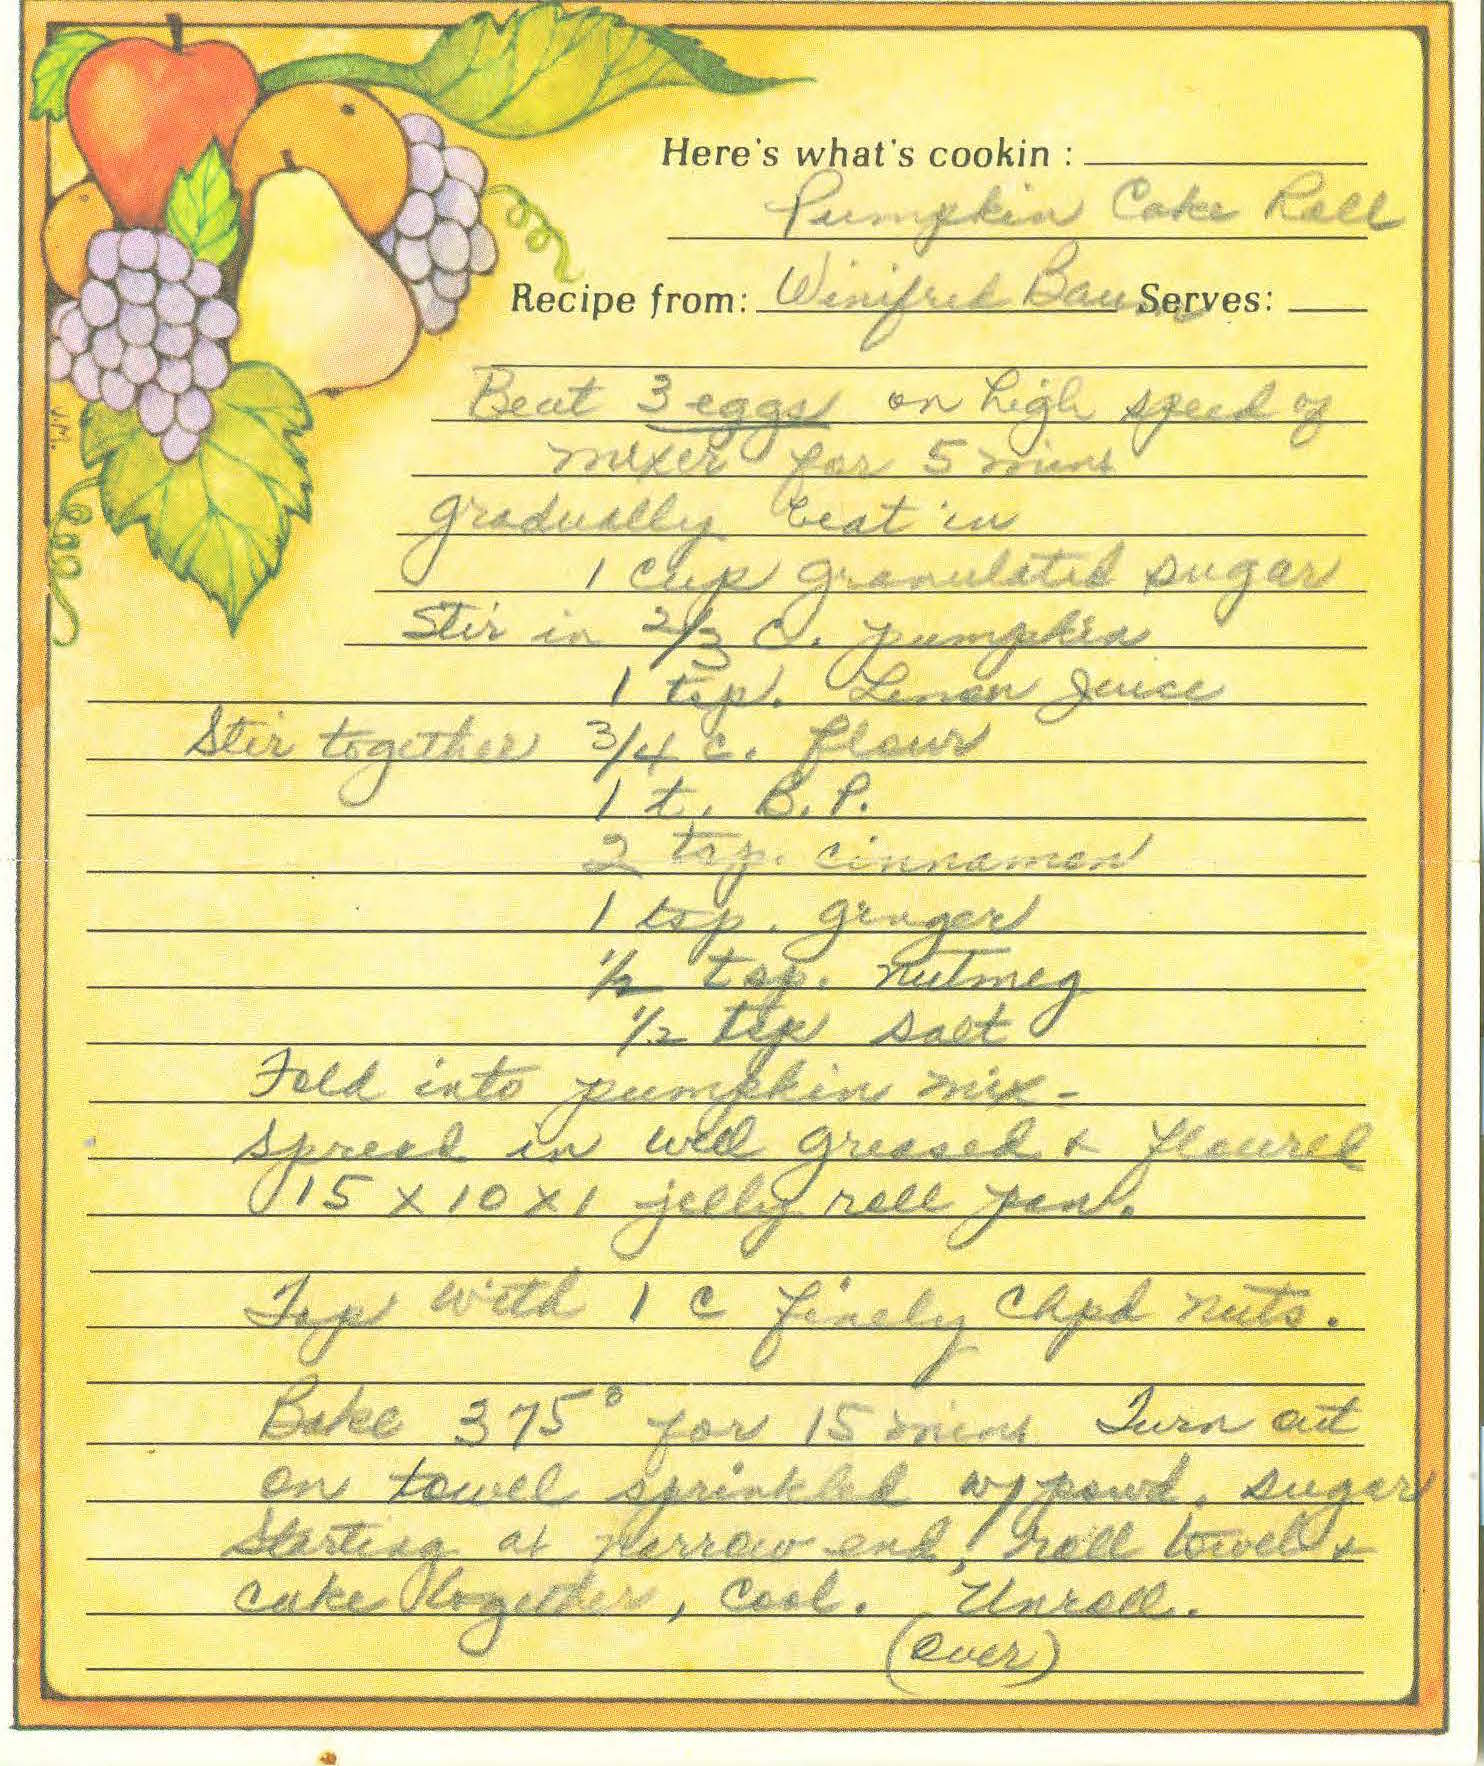 Here's what's cookin :
Pumpkin Cake Roll
Recipe from: Winifred Baum Serves:
Beat 3 eggs on high speed of
mixer for 5 mins
gradually beat in
1 cup granulated sugar
Stir in 2/3 c. pumpkin
1 tsp. Lemon Juice
Stir together 3/4 c. flour
1 t. B.P.
2 tsp. cinnamon
1 tsp. ginger
1/2 tsp. nutmeg
1/2 tsp salt
Fold into pumpkin mix-
spread in well greased & floured
15 x 10 x 1 jelly roll pan.
Top with 1 c finely chpd nuts.
Bake 375° for 15 mins Turn out
on towel sprinkled w/ powd. sugar
Starting at narrow end, roll towel &
cake together, cool. Unroll.
(over)